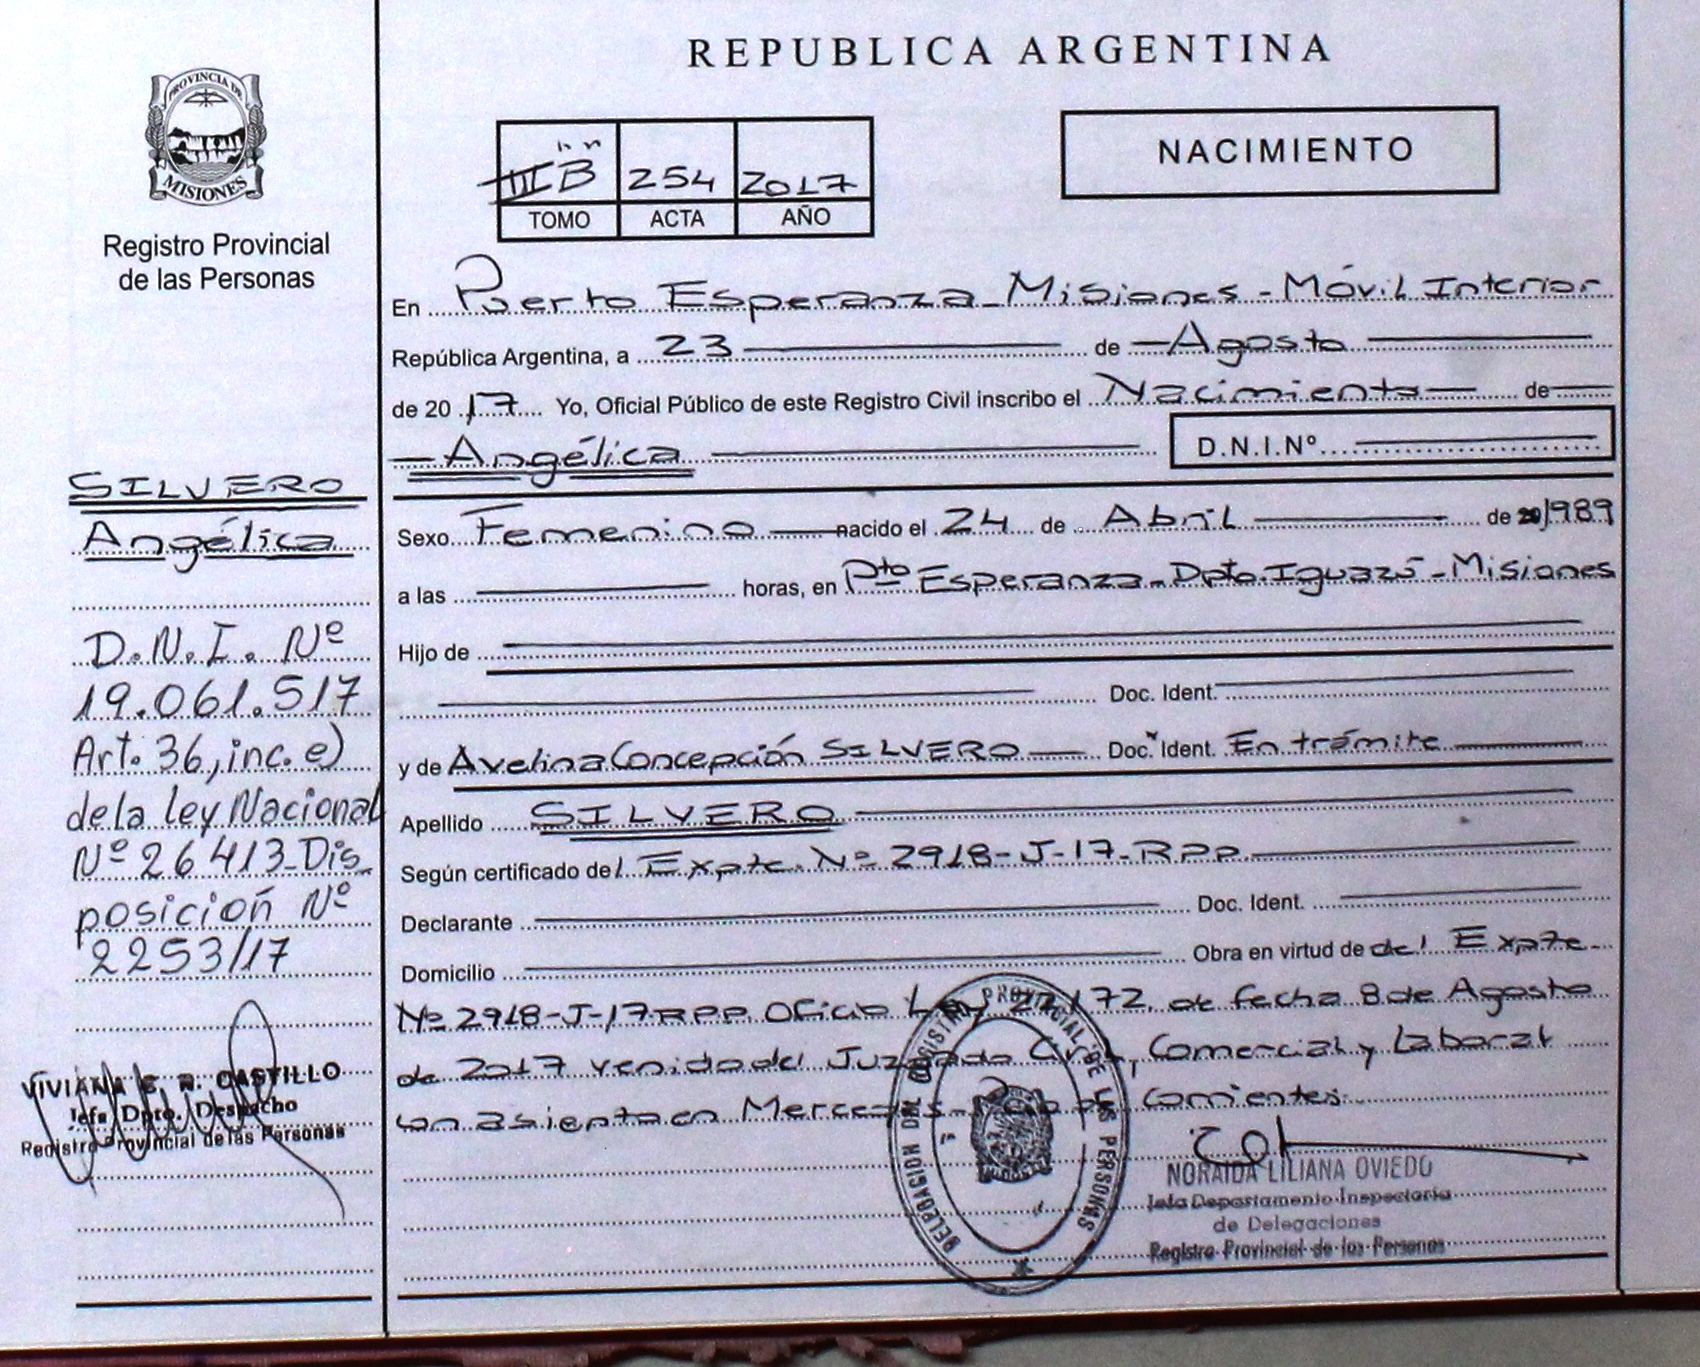 REPUBLICA ARGENTINA
PROVINCIA DE
MISIONES
Registro Provincial
de las Personas
B 254 2017
TOMO ACTA AÑO
NACIMIENTO
En Puerto Esperanza - Misiones - Móvil Interior
República Argentina, a 23 de Agosto
de 2017 Yo, Oficial Público de este Registro Civil inscribo el Nacimiento de
Angélica D.N.I.Nº
Sexo Femenino nacido el 24 de Abril de 1989
a las horas, en Pto Esperanza - Dpto. Iguazú - Misiones
Hijo de
Doc. Ident.
y de Avelina Concepción SILVERO Doc. Ident. En trámite
Apellido SILVERO
Según certificado del Expte. Nº 2918-J-17-RPP
Declarante Doc. Ident.
Domicilio Obra en virtud de del Expte.
Nº 2918-J-17-RPP Oficio Ley 22.172, de fecha 8 de Agosto
de 2017 venido del Juzgado Civil, Comercial y Laboral
con asiento en Mercedes - de Corrientes.
SILVERO
Angélica
D.N.I. Nº
19.061.517
Art. 36, inc. e)
de la ley Nacional
Nº 26413 - Dis
posición Nº
2253/17
VIVIANA E. R. CASTILLO
Jefa Dpto. Despacho
Registro Provincial de las Personas
DELEGACION DEL REGISTRO PROVINCIAL DE LAS PERSONAS
NORAIDA LILIANA OVIEDO
Jefa Departamento Inspectoria
de Delegaciones
Registro Provincial de las Personas